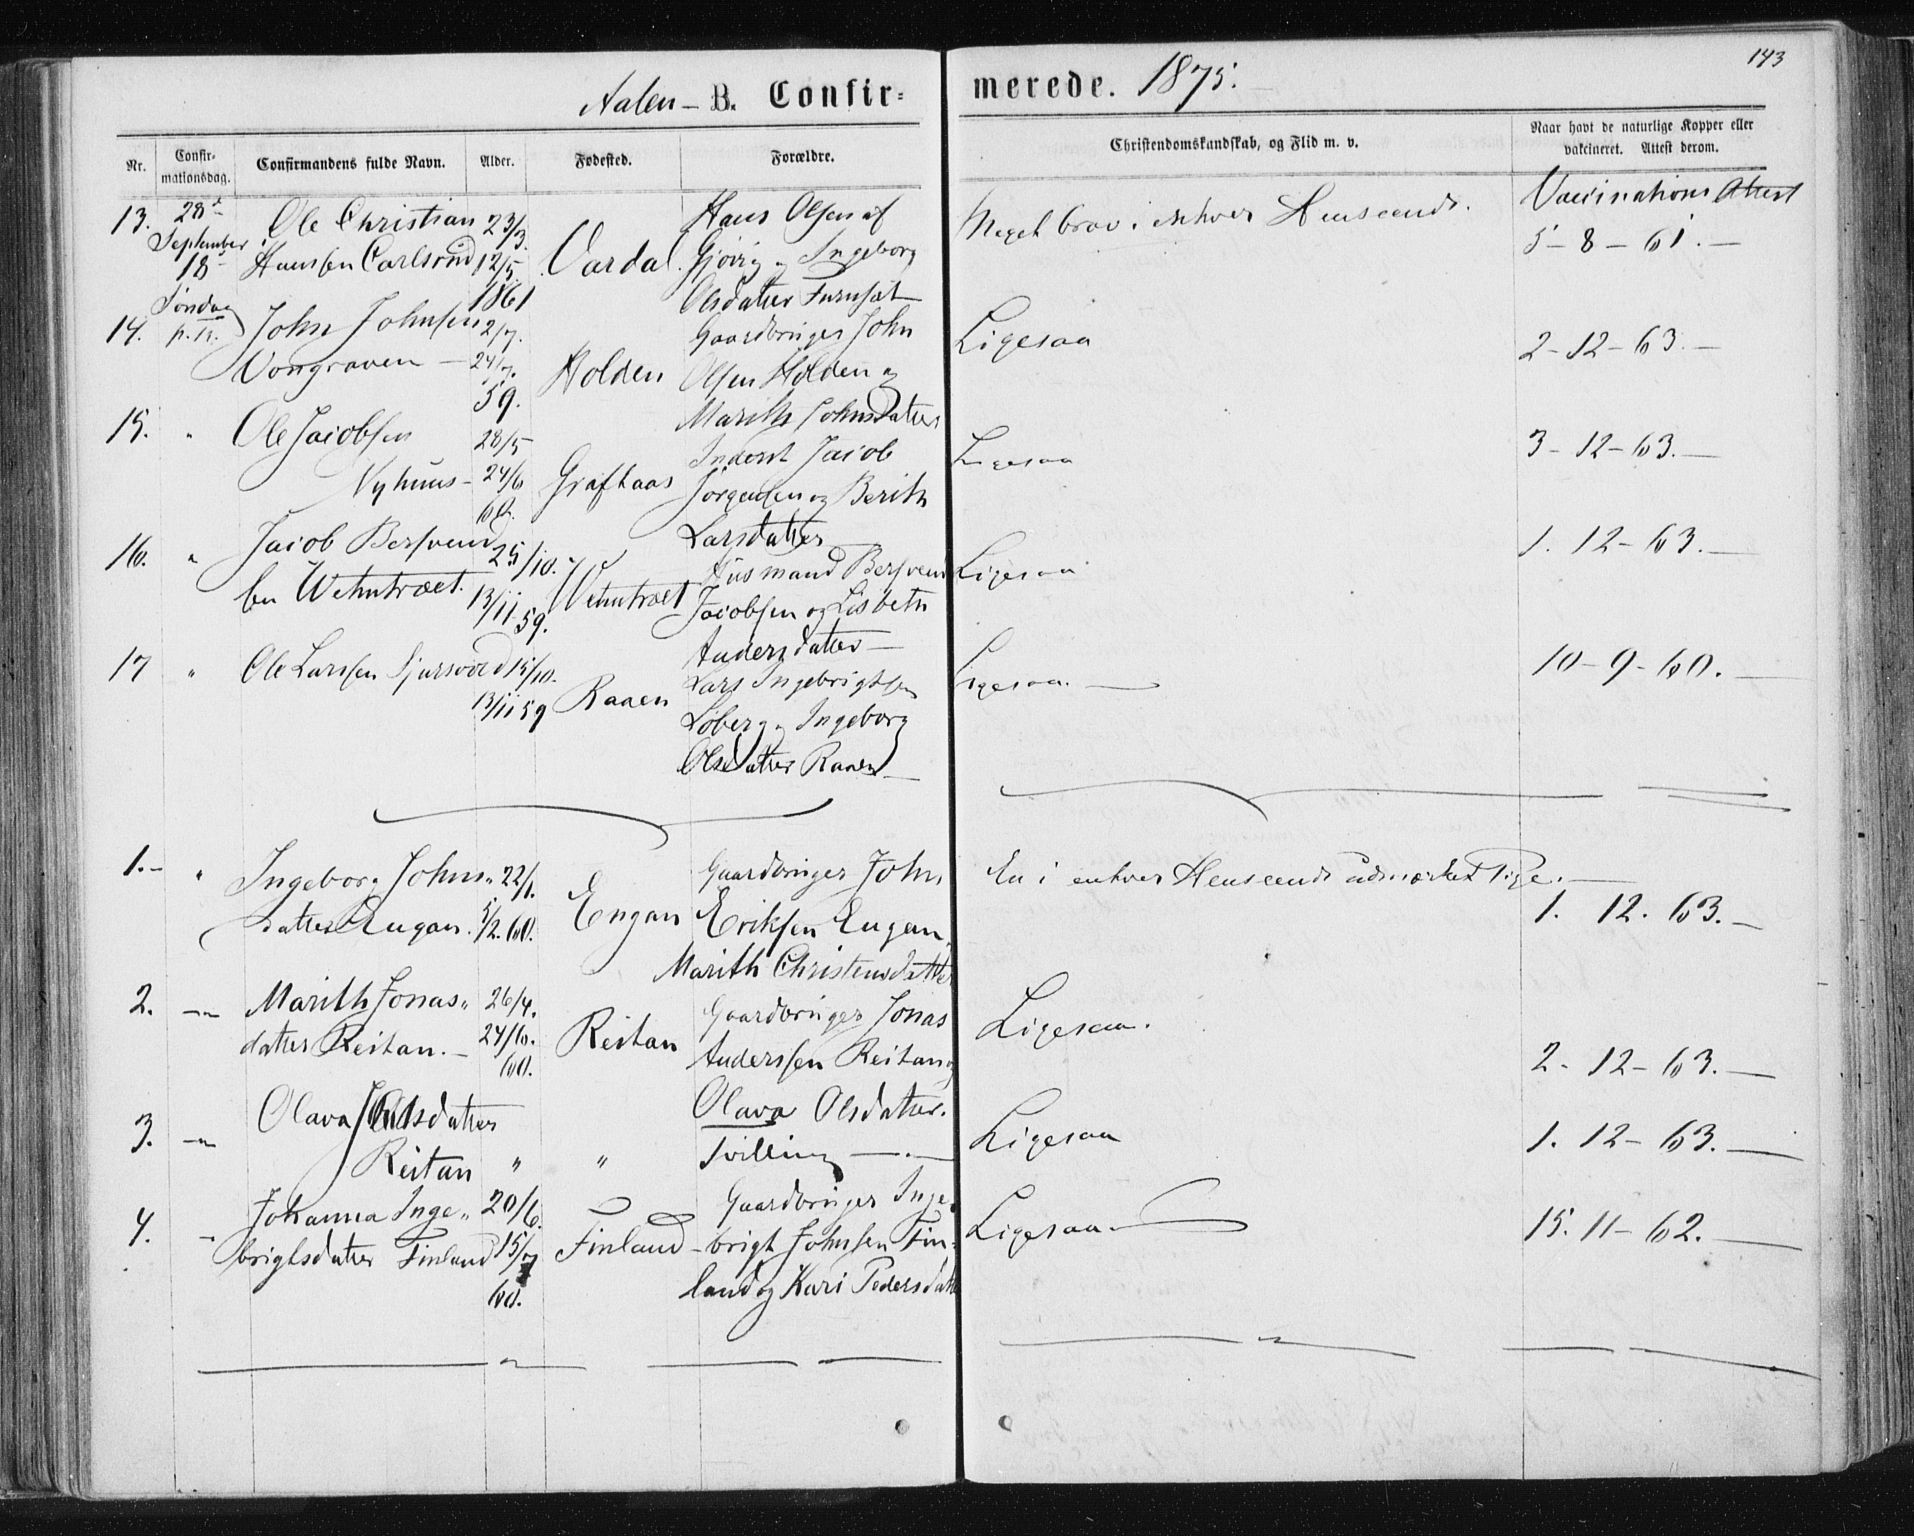 143
Aalen - B. Confir=
merede. 1875.
Nr.
Confir-
mationsdag.
Confirmandens fulde Navn.
Alder.
Fødested.
Forældre.
Christendomskundskab, og Flid m. v.
Naar havt de naturlige Kopper eller
vakcineret. Attest derom.
Vaccinations Attest
13. 28de Ole Christian 23/3. Hans Olsen af Meget brav i enhver Henseende.
September Hansen Carlsrud 12/5. Vardal. Gjøvig og Ingeborg 5 - 8 - 61. -
18
1861 Olsdatter Furusæt
Søndag
14. p. tr. John Johnsen 2/7. Gaardbruger John Ligesaa 2 - 12 - 63. -
Vongraven - 24/7. Holden Olsen Holden og
59. Marith Johnsdatter
15. " Ole Jacobsen 28/5 Inderst Jacob Ligesaa 3 - 12 - 63. -
Nyhuus - 24/6 Grafhaas Jørgensen og Berith
60. Larsdatter
16. " Jacob Bersvend 25/10. Husmand Bersvend Ligesaa 1. 12 - 63. -
sen Wehntræet. 13/11 59. Wehntræet Jacobsen og Lisbeth
Andersdatter -
17 " Ole Larssen 15/10. Lars Ingebrigtsen Ligesaa. - 10 - 9 - 60. -
13/11 59 Raaen Løberg og Ingeborg
Olsdatter Raaen -
1. - " Ingeborg Johns" 22/1. Gaardbruger John En i enhver Henseende udmærket Pige. -
datter Engan. 5/2. 60. Engan Eriksen Engan, 1. 12. 63. -
Marith Christensdatter
2. - " - Marith Jonas" 26/4. Gaardbruger Jonas Ligesaa.
datter Reitan. - 24/6. Reitan Anderssen Reitan og 2 - 12 - 63. -
60. Olava Olsdatter.
3. - " - Olava Jonasdatter Tvilling - . - Ligesaa 1. 12 - 63. -
Reitan " "
4. - Johanna Inge" 20/6. Gaardbruger Inge" Ligesaa - 15. 11 - 62. -
brigtsdatter Finland 15/7 Finland - brigt Johnsen Fin-
60. land og Kari Pedersdatter